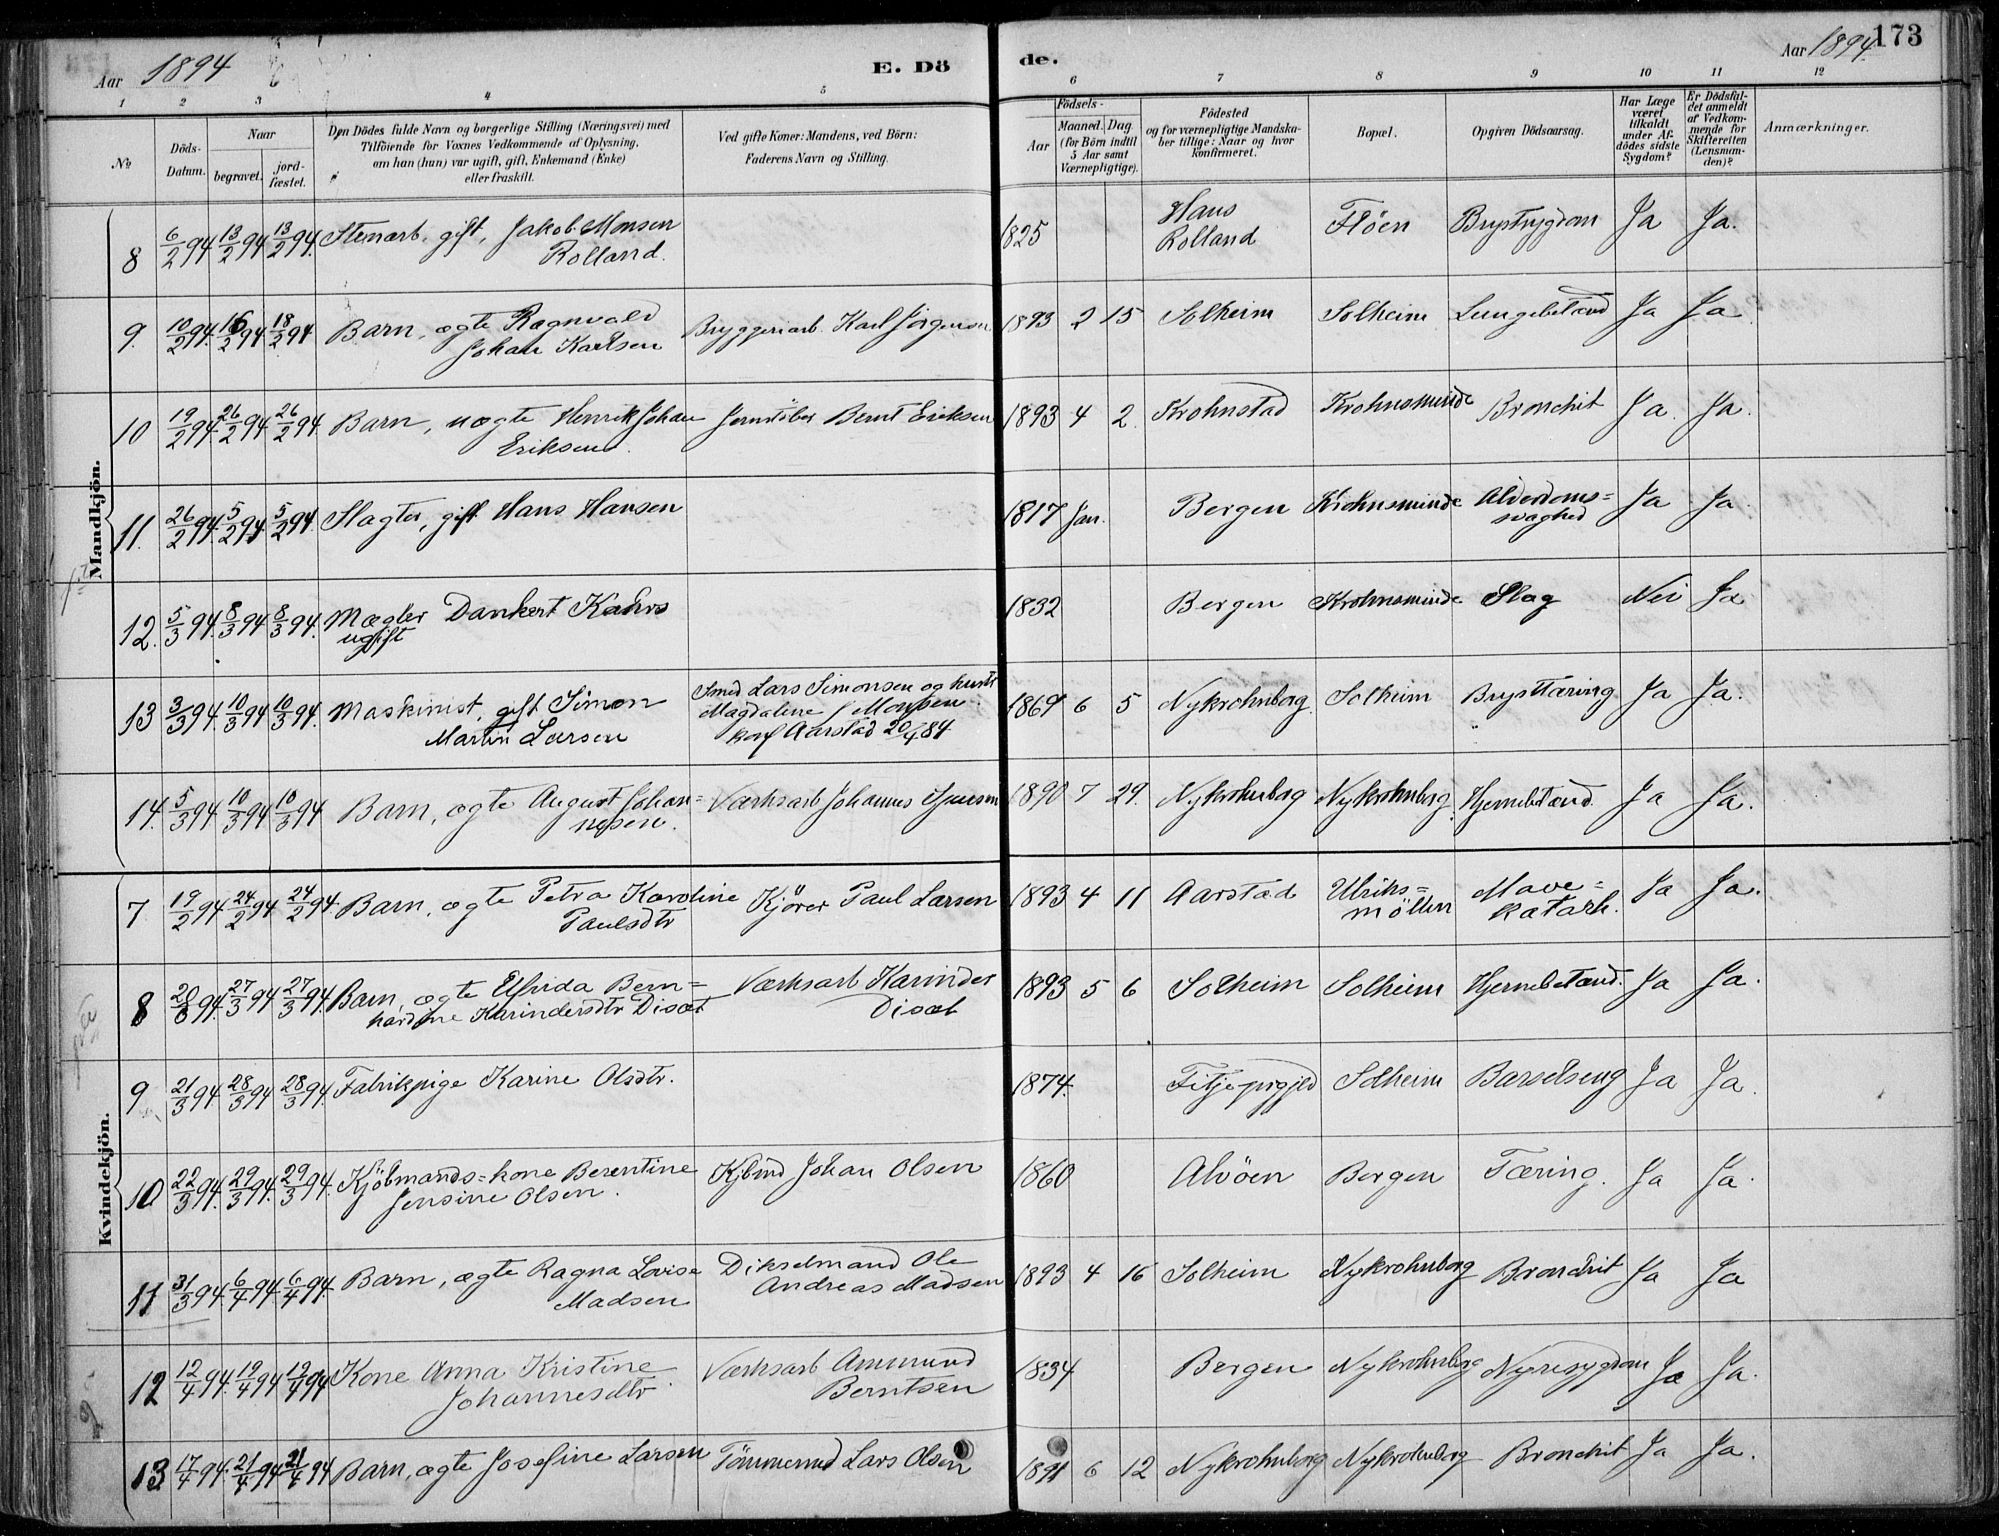 Aar 1894
E. Dö
de.
Aar 1894.
173
1 2 3 4 5 6 7 8 9 10 11 12
No
Döds-
Datum.
Naar
begravet.
jord-
fæstet.
Den Dödes fulde Navn og borgerlige Stilling (Næringsvei) med
Tilföiende for Voxnes Vedkommende af Oplysning,
om han (hun) var ugift, gift, Enkemand (Enke)
eller fraskilt.
Ved gifte Koner: Mandens, ved Börn:
Faderens Navn og Stilling.
Födsels-
Aar
Maaned. Dag
(for Börn indtil
5 Aar samt
Værnepligtige).
Födested
og for værnepligtige Mandska-
ber tillige: Naar og hvor
konfirmeret.
Bopæl.
Opgiven Dödsaarsag.
Har Læge
været
tilkaldt
under Af-
dödes sidste
Sygdom?
Er Dödsfal-
det anmeldt
af Vedkom-
mende for
Skifteretten
(Lensman-
den)?
Anmærkninger.
Mandkjön.
8 6/2 94 13/2 94 13/2 94. Stenarb. gift, Jakob Monsen
Rolland.
1825 Haus
Rolland Flöen Brystsygdom Ja Ja.
9. 10/2 94. 16/2 94 18/2 94 Barn, ægte Ragnvald
Johan Karlsen
Bryggeriarb. Karl Jörgensen 1893 2 15 Solheim Solheim Lungebetænd Ja Ja
10 19/2 94. 26/2 94 26/2 94 Barn, uægte Henrik Johan
Eriksen.
Bernt Eriksen 1893 4 2. Krohnstad Krohnsminde Bronchit Ja. Ja.
11. 26/2 94. 5/2 94 5/2 94. Slagter, gift Hans Hansen
1817 Jan. Bergen Krohnsminde Alderdoms=
svaghed Ja Ja.
12. 5/3 94. 8/3 94 8/3 94. Mægler Dankert Kahrs
ugift
1832 Bergen Krohnsminde Slag Nei Ja
13 3/3 94. 10/3 94 10/3 94. Maskinist, gift Simon
Martin Larsen
Smed Lars Simonsen og hustr
Magdalene f Monsen.
konf Aarstad 20/4 84
1869 6 5 Nykrohnborg. Solheim Brysttæring Ja Ja.
14. 5/3 94 10/3 94 10/3 94 Barn, ægte August Johan=
nesen.
Værksarb Johannes 1890 7 29. Nykrohnborg Nykrohnborg Hjernebetænd. Ja Ja.
Kvindekjön.
7 19/2 94 24/2 94 24/2 94 Barn, ægte Petra Karoline
Paulsdtr
Kjörer Paul Larsen 1893 4 11 Aarstad Ulriks=
möllen Mave=
katarh. Ja Ja.
8 20/3 94. 27/3 94 27/3 94. Barn, ægte Elfrida Bern=
hardine Karindersdtr Disæt
Værksarb Karinder
Disæt
1893 5 6 Solheim Solheim Hjernebetænd. Ja Ja.
9 21/3 94. 28/3 94 28/3 94. Fabrikpige Karine Olsdtr.
1874. Fitje prgjld Solheim Barselseng Ja Ja.
10 22/3 94. 29/3 94. 29/3 94. Kjöbmands=kone Berentine
Jensine Olsen.
Kjbmd Johan Olsen 1860 Alvöen Bergen Tæring. Ja Ja.
11 31/3 94. 6/4 94 6/4 94. Barn, ægte Ragna Lovise
Madsen
Dikselmand Ole
Andreas Madsen 1893 4 16 Solheim Nykrohnborg Bronchit Ja Ja
12 12/4 94. 19/4 94 19/4 94 Kone Anna Kristine
Johannesdtr.
Værksarb Ammund
Berntsen
1834 Bergen Nykrohnborg Nyresygdom Ja Ja.
13 17/4 94. 21/4 94 21/4 94 Barn, ægte Josefine Larsen Tömmermd Lars Olsen 1891 6 12 Nykrohnborg Nykrohnborg Bronchit Ja Ja.